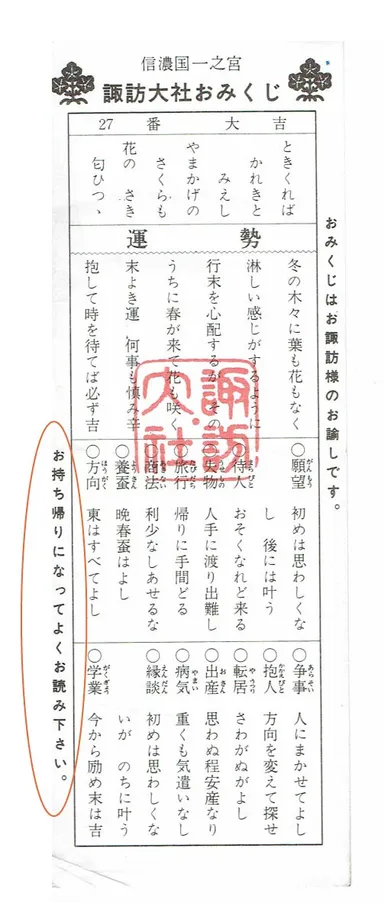 信濃国一之宮
諏訪大社おみくじ
27 番 大吉
おみくじはお諏訪様のお諭しです。
ときくれば
かれきと
みえし
やまかげの
さくらも
花の さき
匂ひつゝ
運勢
冬の木々に葉も花もなく
淋しい感じがするように
行末を心配するが その
うちに春が来て花も咲く
末よき運 何事も慎み辛
抱して時を待てば必ず吉
○願望 初めは思わしくな
し 後には叶う
○待人 おそくなれど来る
○失物 人手に渡り出難し
○旅行 帰りに手間どる
○商法 利少なしあせるな
○養蚕 晩春蚕はよし
○方向 東はすべてよし
○争事 人にまかせてよし
○抱人 方向を変えて探せ
○転居 さわがぬがよし
○出産 思わぬ程安産なり
○病気 重くも気遣いなし
○縁談 初めは思わしくな
いが のちに叶う
○学業 今から励め末は吉
お持ち帰りになってよくお読み下さい。
諏訪大社